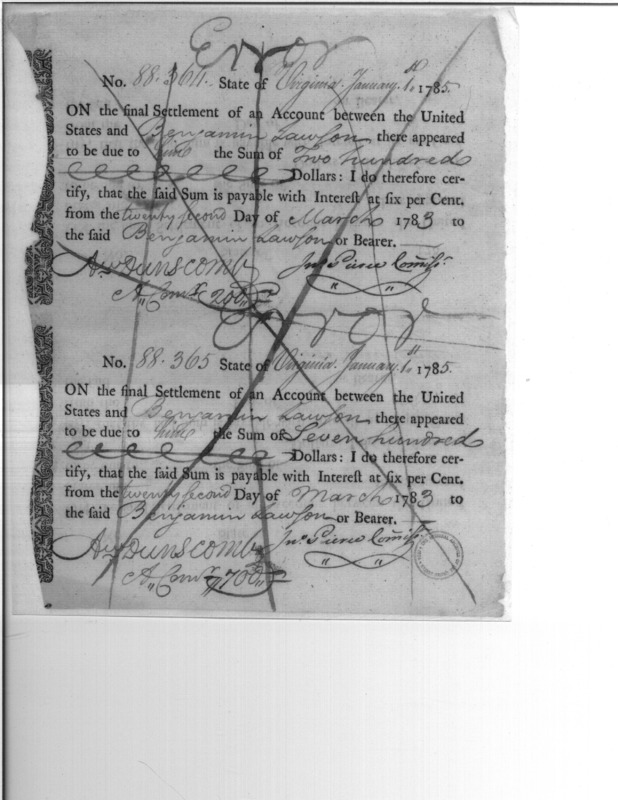 Error
No. 88.364. State of Virginia. January. 1st 1785.
ON the final Settlement of an Account between the United
States and Benjamin Lawson there appeared
to be due to him the Sum of Two hundred
Dollars: I do therefore cer-
tify, that the said Sum is payable with Interest at six per Cent.
from the twenty second Day of March 1783 to
the said Benjamin Lawson or Bearer.
Aw Dunscomb Jno Pierce Commissr.
A, Comr 200
Error
No. 88.365 State of Virginia. January. 1st 1785.
ON the final Settlement of an Account between the United
States and Benjamin Lawson there appeared
to be due to him the Sum of Seven hundred
Dollars: I do therefore cer-
tify, that the said Sum is payable with Interest at six per Cent.
from the twenty second Day of March 1783 to
the said Benjamin Lawson or Bearer.
Aw Dunscomb Jno Pierce Commissr.
A, Comr 700